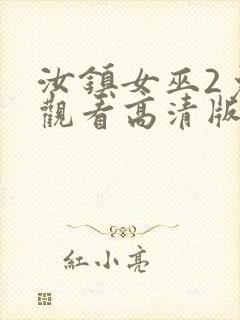 汝鎮女巫2
觀看高清版
紅小亮